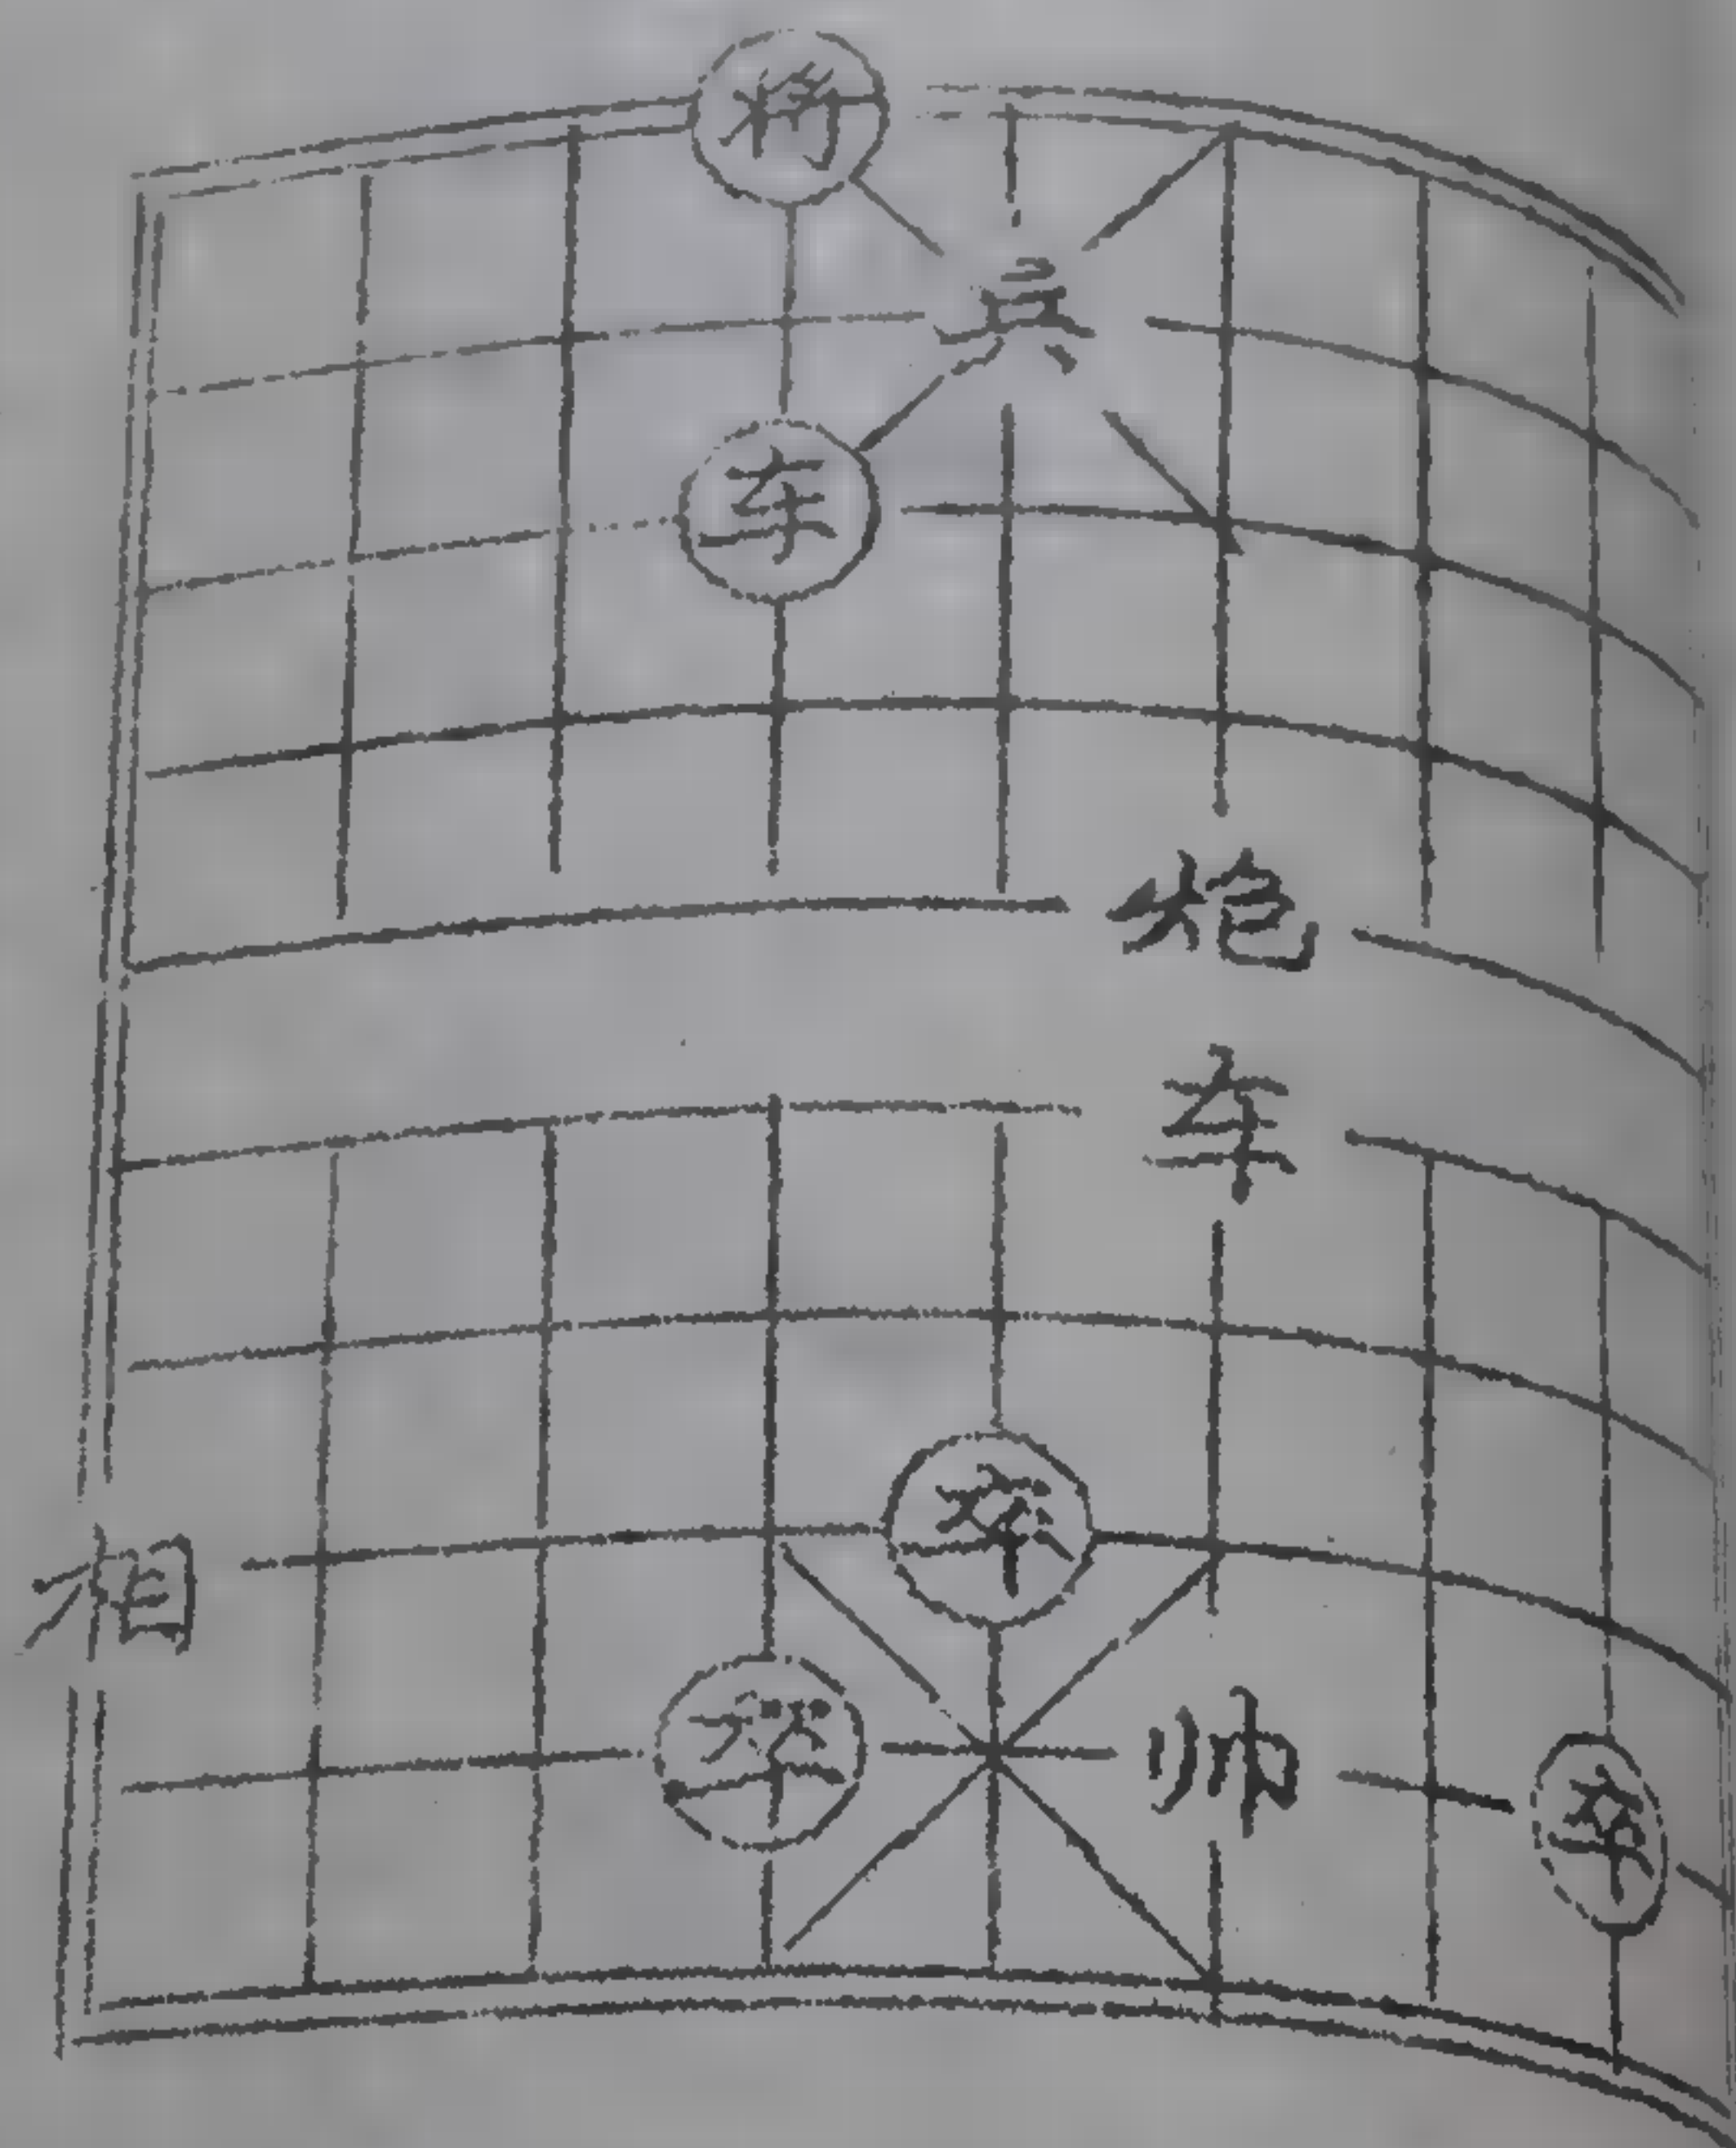 将
兵
车
炮
车
卒
相
卒
帅
卒